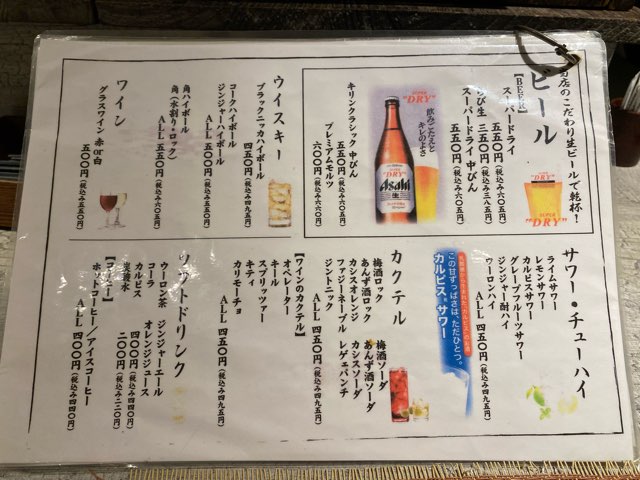 当店のこだわり生ビールで乾杯!
ビール
【BEER】
スーパードライ
五五〇円(税込み六〇五円)
ちび生
三五〇円(税込み三八五円)
スーパードライ 中びん
五五〇円(税込み六〇五円)
SUPER "DRY"
飲みごたえと
キレのよさ
SUPER "DRY"
Asahi
生
SUPER "DRY"
キリンクラシック 中びん
五五〇円(税込み六〇五円)
プレミアムモルツ
六〇〇円(税込み六六〇円)
ウイスキー
ブラックニッカハイボール
四五〇円(税込み四九五円)
コークハイボール
ジンジャーハイボール
ALL 五〇〇円(税込み五五〇円)
角ハイボール
角(水割り・ロック)
ALL 五五〇円(税込み六〇五円)
ワイン
グラスワイン 赤or白
五〇〇円(税込み五五〇円)
サワー・チューハイ
ライムサワー
レモンサワー
カルピスサワー
グレープフルーツサワー
ジンジャー酎ハイ
ウーロンハイ
ALL 四五〇円(税込み四九五円)
この甘ずっぱさは、ただひとつ。
カルピスサワー
カクテル
梅酒ロック 梅酒ソーダ
あんず酒ロック あんず酒ソーダ
カシスオレンジ カシスソーダ
ファジーネーブル レゲエパンチ
ジントニック
ALL 四五〇円(税込み四九五円)
【ワインのカクテル】
オペレーター
キール
スプリッツァー
キティ
カリモーチョ
ALL 四五〇円(税込み四九五円)
ソフトドリンク
ウーロン茶 ジンジャーエール
コーラ オレンジジュース
カルピス 四〇〇円(税込み四四〇円)
炭酸水 二〇〇円(税込み二二〇円)
【コーヒー】
ホットコーヒー/アイスコーヒー
ALL 四〇〇円(税込み四四〇円)